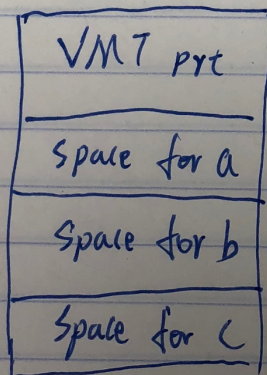 VMT prt
Space for a
Space for b
Space for c